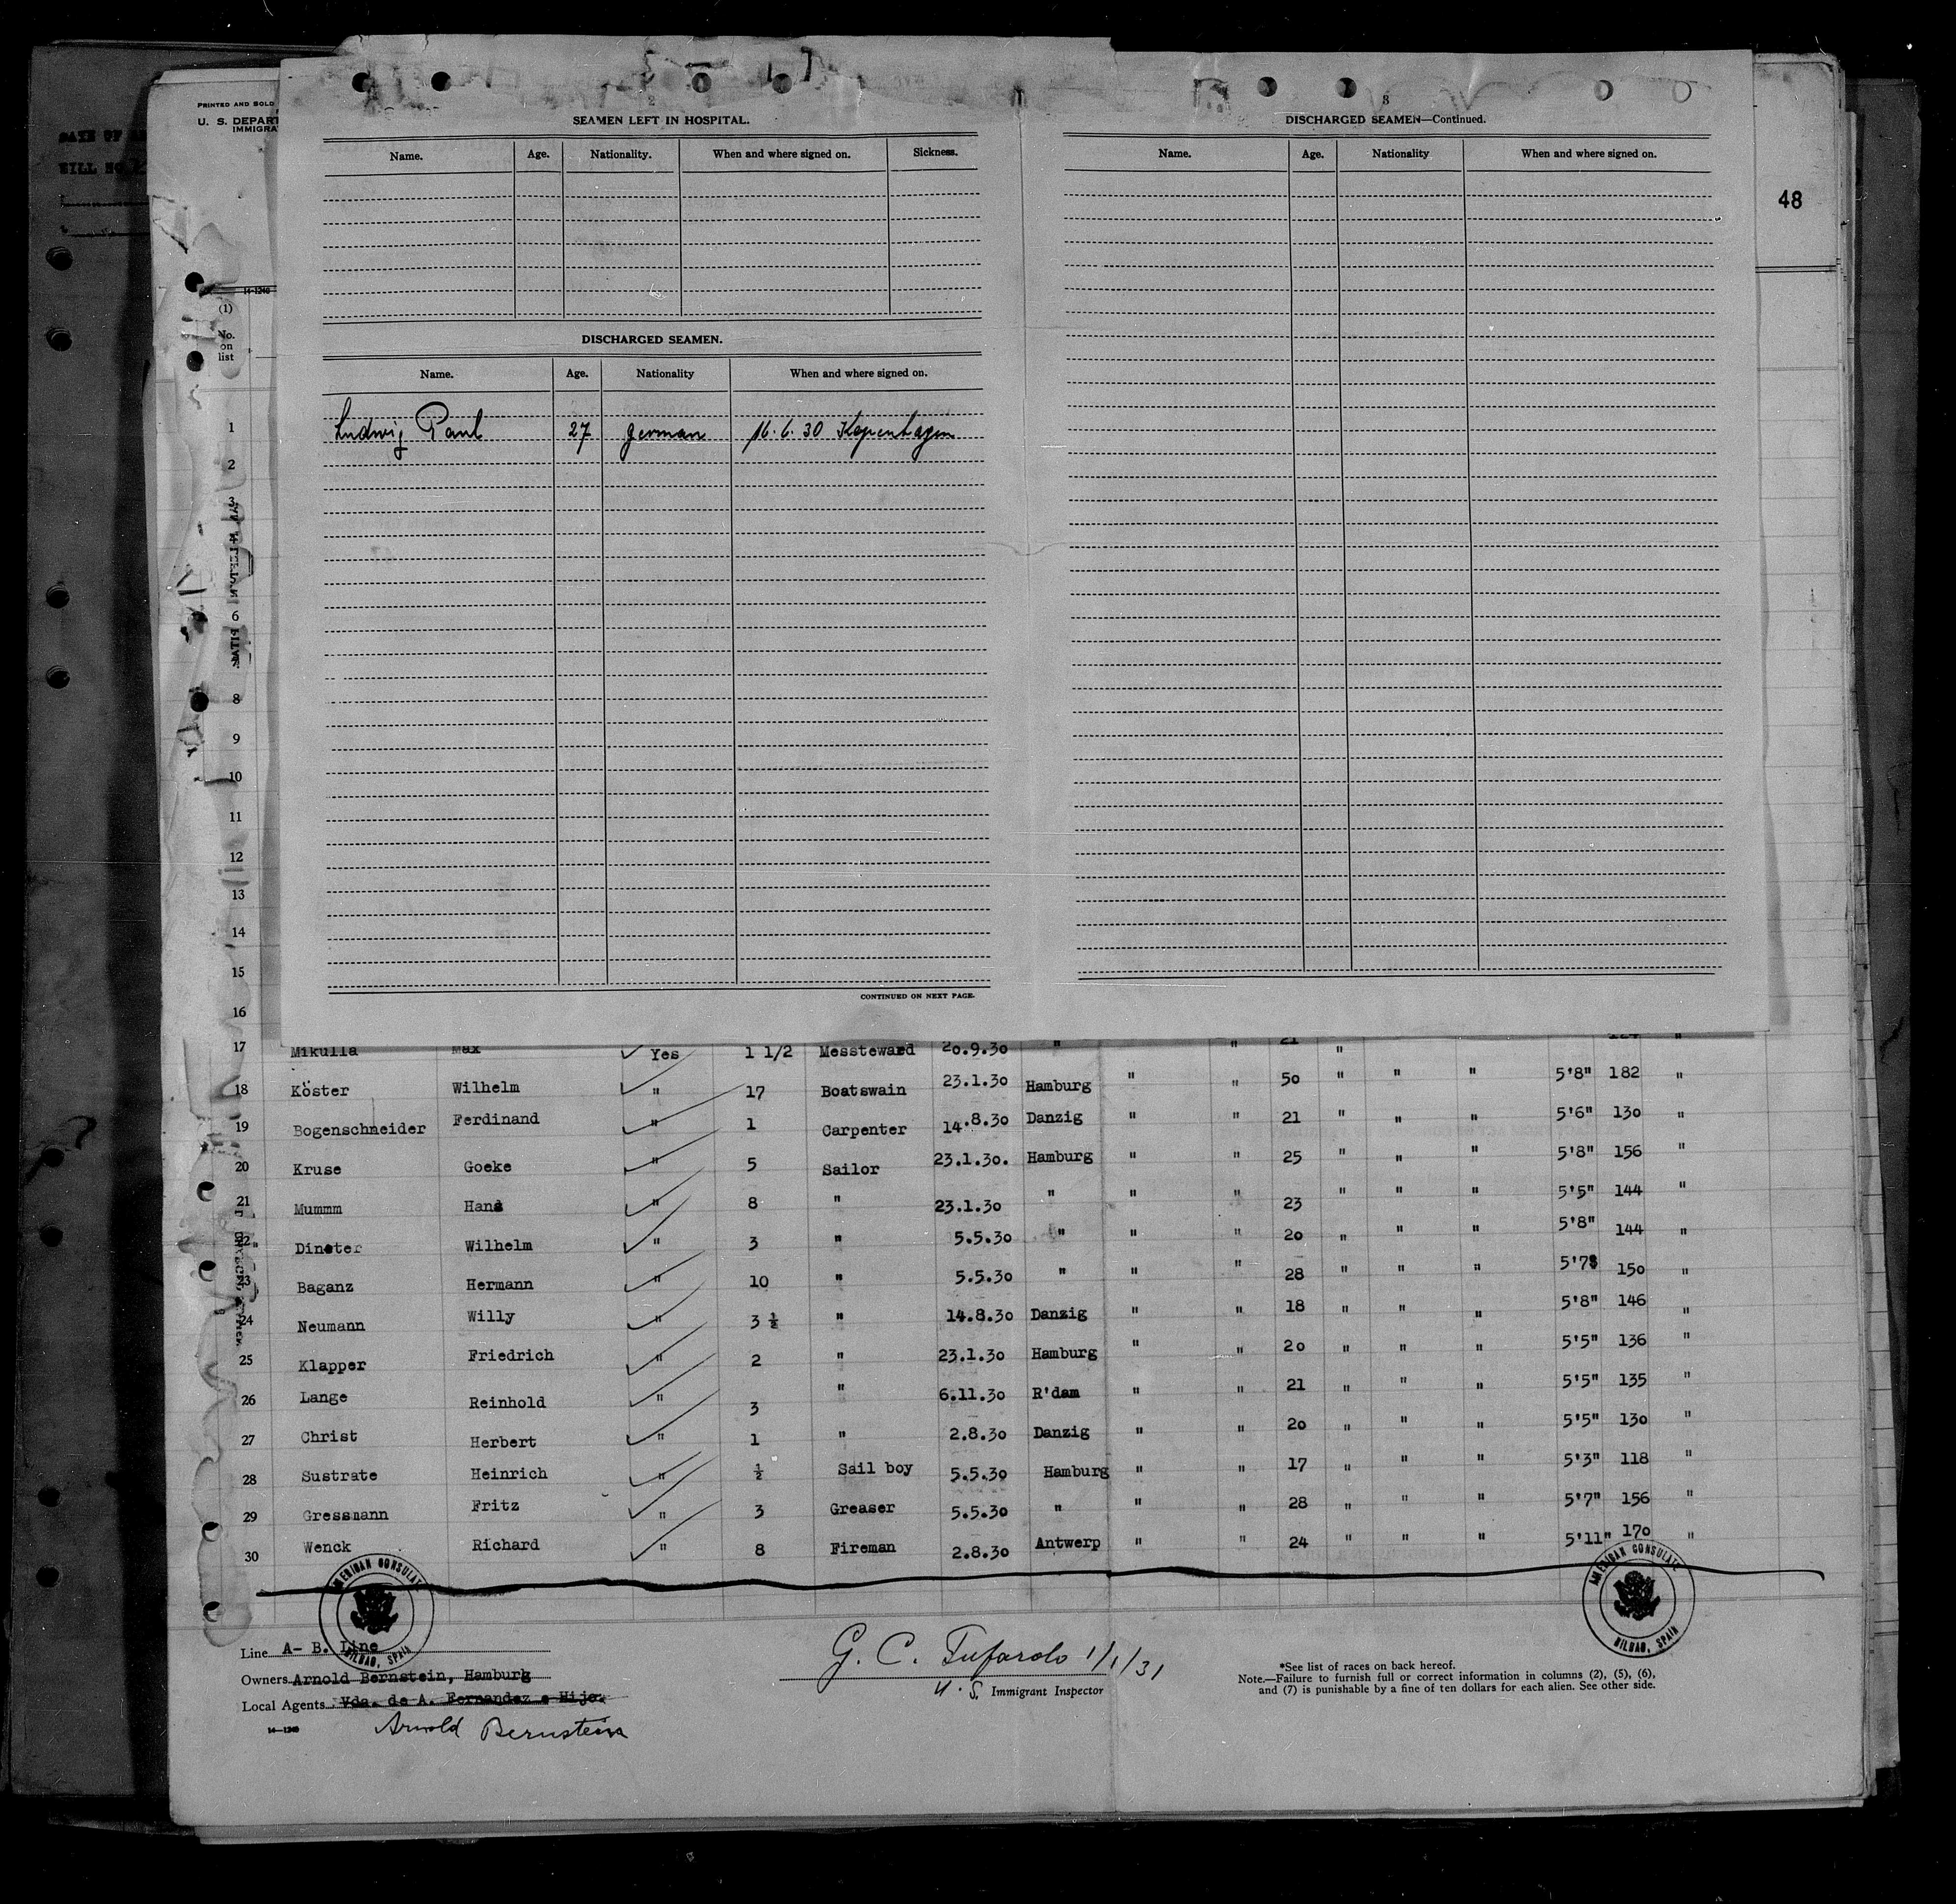 PRINTED AND SOLD
U. S. DEPART
IMMIGRA
48
2
SEAMEN LEFT IN HOSPITAL.
Name. Age. Nationality. When and where signed on. Sickness.
DISCHARGED SEAMEN.
Name. Age. Nationality When and where signed on.
Ludwig Paul 27 german 16.6.30 Kopenhagen
CONTINUED ON NEXT PAGE.
DISCHARGED SEAMEN—Continued.
Name. Age. Nationality When and where signed on.
14-1240
(1)
No.
on
list
1
2
3
6
8
9
10
11
12
13
14
15
16
17 Mikulla Max Yes 1 1/2 Messteward 20.9.30 " " 21 "
18 Köster Wilhelm " 17 Boatswain 23.1.30 Hamburg " " 50 " " " 5'8" 182 "
19 Bogenschneider Ferdinand " 1 Carpenter 14.8.30 Danzig " " 21 " " " 5'6" 130 "
20 Kruse Goeke " 5 Sailor 23.1.30. Hamburg " " 25 " " " 5'8" 156 "
21 Mummm Hans " 8 " 23.1.30 " " " 23 " " " 5'5" 144 "
22 Dinster Wilhelm " 3 " 5.5.30 " " " 20 " " " 5'8" 144 "
23 Baganz Hermann " 10 " 5.5.30 " " " 28 " " " 5'7" 150 "
24 Neumann Willy " 3 ½ " 14.8.30 Danzig " " 18 " " " 5'8" 146 "
25 Klapper Friedrich " 2 " 23.1.30 Hamburg " " 20 " " " 5'5" 136 "
26 Lange Reinhold " 3 " 6.11.30 R'dam " " 21 " " " 5'5" 135 "
27 Christ Herbert " 1 " 2.8.30 Danzig " " 20 " " " 5'5" 130 "
28 Sustrate Heinrich " ½ Sail boy 5.5.30 Hamburg " " 17 " " " 5'3" 118 "
29 Gressmann Fritz " 3 Greaser 5.5.30 " " " 28 " " " 5'7" 156 "
30 Wenck Richard " 8 Fireman 2.8.30 Antwerp " " 24 " " " 5'11" 170 "
AMERICAN CONSULATE
BILBAO, SPAIN
AMERICAN CONSULATE
BILBAO, SPAIN
Line A- B. Line
Owners Arnold Bernstein, Hamburg
Local Agents Vda. de A. Fernandez e Hijo.
14-1240
Arnold Bernstein
G. C. Tufarolo 1/1/31
U. S. Immigrant Inspector
*See list of races on back hereof.
Note.—Failure to furnish full or correct information in columns (2), (5), (6),
and (7) is punishable by a fine of ten dollars for each alien. See other side.